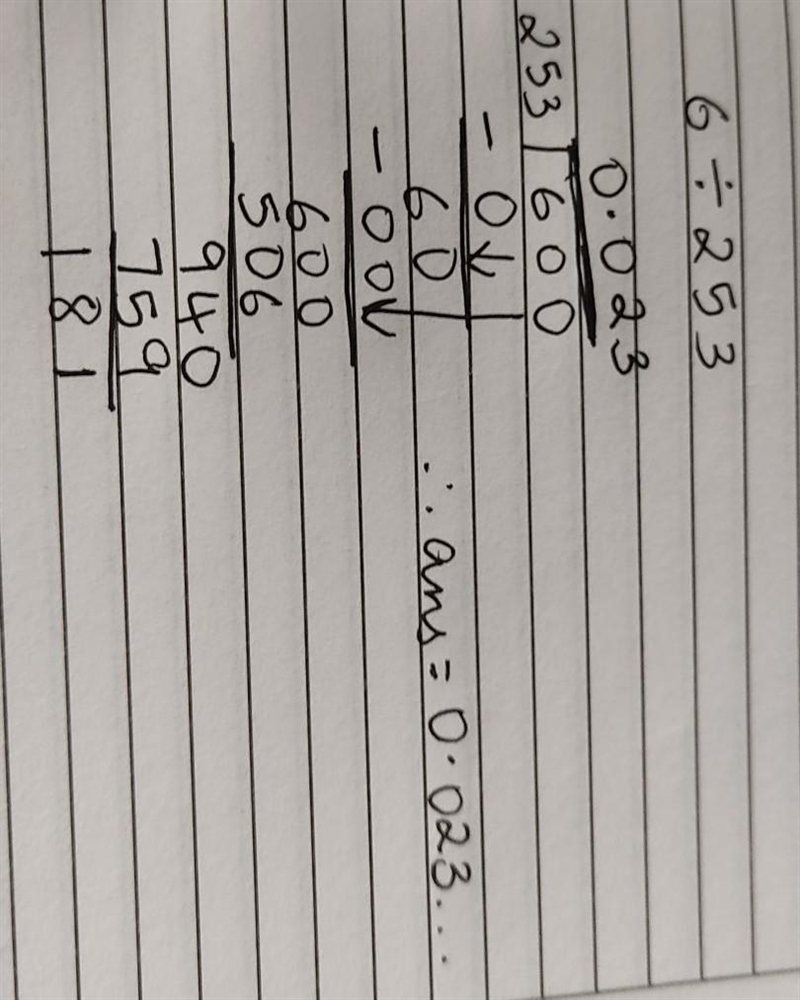 6 ÷ 253
0.023
253 ) 600
- 0↓
60
- 00↓
600
506
940
759
181
∴ ans = 0.023...